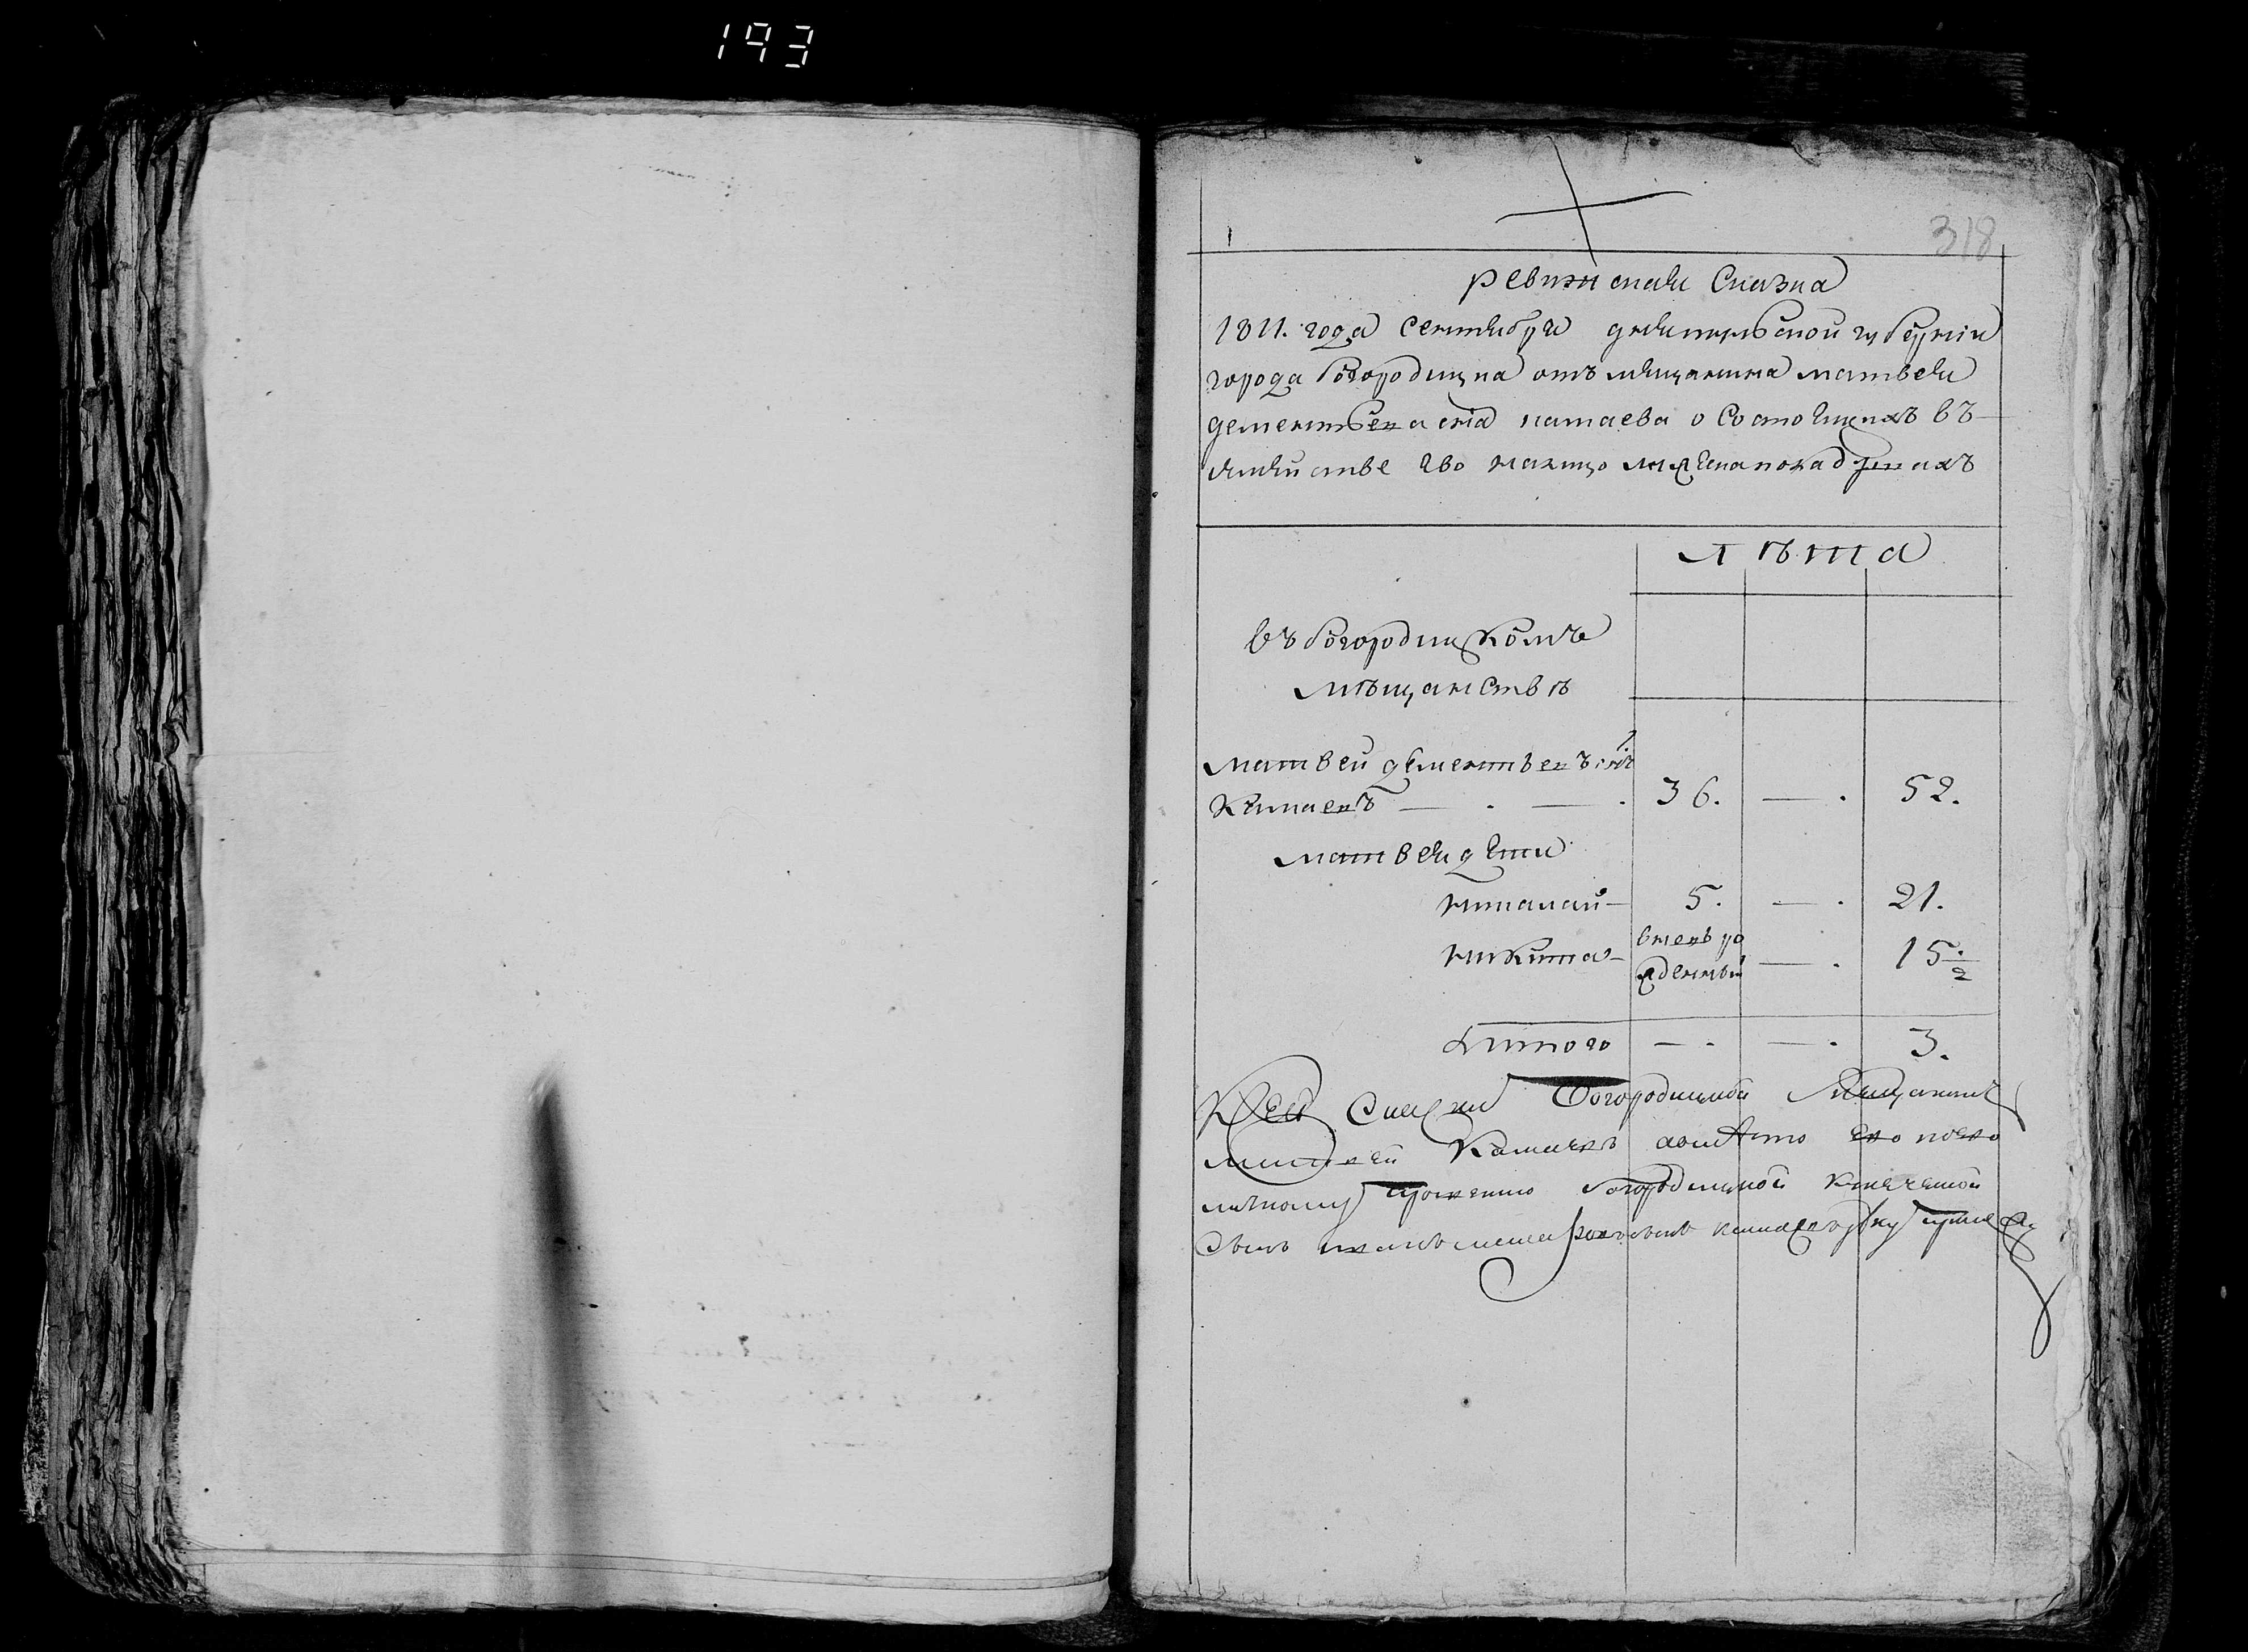 193
318
1
ревизская Сказка
1811. года сентября дня тульской губернiи
города богородицка отъ мещанина матвея
дементьева сна катаева о состоящихъ въ
семействе ево налицо мужеска пола душахъ
лѣта
въ богородицкомъ
мѣщанствѣ
матвей дементьевъ снъ 1
Катаевъ — . — . 36. — . 52.
матвея дети
николай — 5. — . 21.
никита — вневь рожденный — . 15 1/2
Итого — . — . 3.
К сей Сказки Богородицкой Мещанинъ
матвей Катаевъ а вместо ево по ево
личному прошению богородицкой купеческой
Сынъ руку приложилъ